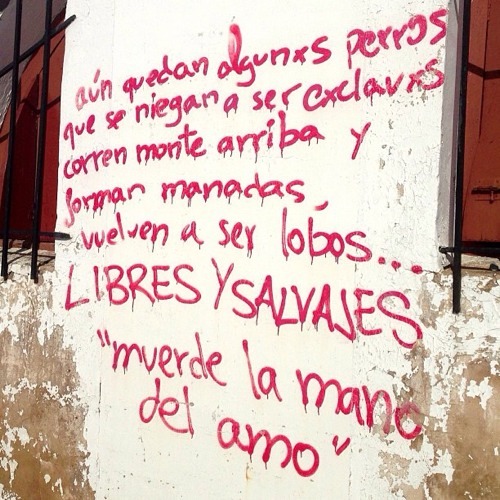 aún quedan algunxs perros
que se niegan a ser exclavxs
corren monte arriba y
forman manadas,
vuelven a ser lobos...
LIBRES Y SALVAJES
"muerde la mano
del amo"